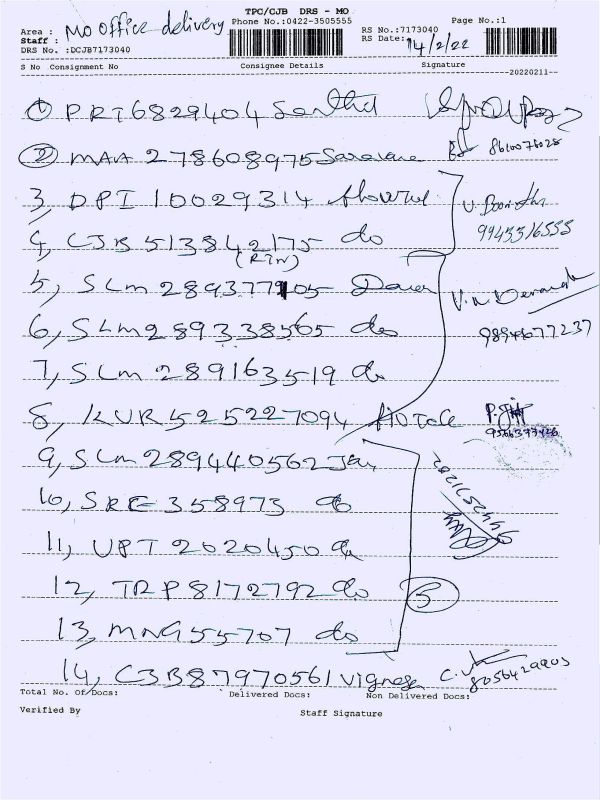 TPC/CJB DRS - MO
Area : MO office delivery Phone No.:0422-3505555 Page No.:1
Staff : RS No.:7173040
DRS No. :DCJB7173040 RS Date: 14/2/22
S No Consignment No Consignee Details Signature
20220211
1 PRT6829404 Senthil
2 MAA 278608975 Saravana 8610076028
3, DPI 10029314
4, CJB 513842175 do 9943316555
(RTN)
5, SLM 289377905
6, SLM 289338565 do 9894677237
7, SLM 289163519 do
8, KUR 525227094 P.
9, SLM 289440562
10, SRE 358973 do
11, UPT 2020450 do
12, TRP 8172792 do 5
13, MNG 55707 do
14, CJB 87970561 Vignesh 8056429903
Total No. Of Docs: Delivered Docs: Non Delivered Docs:
Verified By Staff Signature